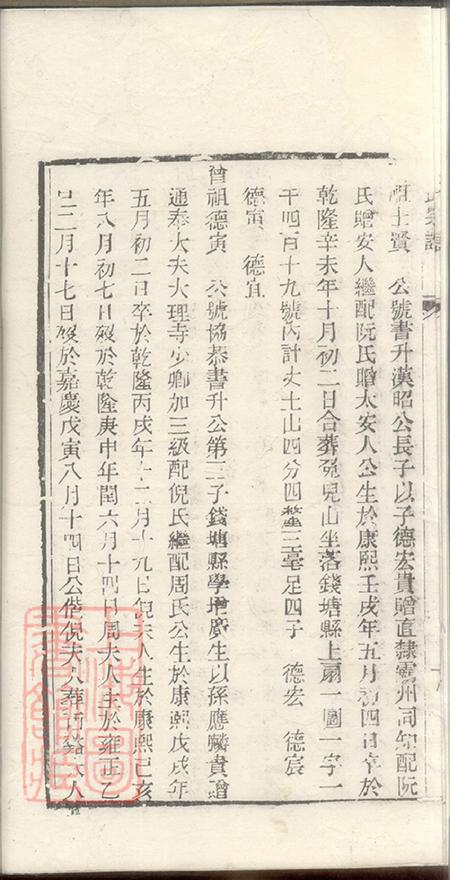 祖士賢　公號書升漢昭公長子以子德宏貴贈直隸霸州同知配阮
氏贈安人繼配阮氏贈太安人公生於康熙壬戌年五月初四日卒於
乾隆辛未年十月初二日合葬兔兒山坐落錢塘縣上扇一圖一字一
千四百十九號內計丈土山四分四釐三毫足四子　德宏　德宸
德寅　德宜
曾祖德寅　公號協恭書升公第三子錢塘縣學增廣生以孫應麟貴贈
通奉大夫大理寺少卿加三級配倪氏繼配周氏公生於康熙戊戌年
五月初二日卒於乾隆丙戌年十二月十九日倪夫人生於康熙己亥
年八月初七日歿於乾隆庚申年閏六月十四日周夫人生於雍正乙
巳二月十七日歿於嘉慶戊寅八月十四日公偕倪夫人葬